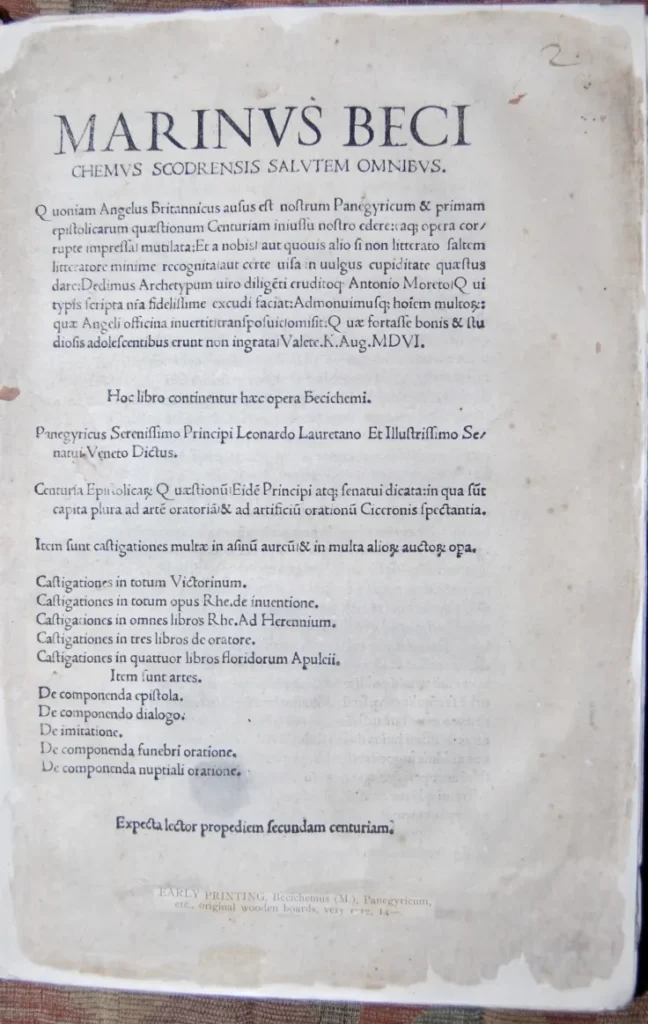 2
MARINVS BECI
CHEMVS SCODRENSIS SALVTEM OMNIBVS.
Q uoniam Angelus Britannicus ausus est nostrum Panegyricum & primam
epistolicarum quæstionum Centuriam iniussu nostro edere: atq; opera cor/
rupte impressa/ mutilata: Et a nobis/ aut quouis alio si non litterato saltem
litteratore minime recognita/ aut certe uisa in uulgus cupiditate quæstus
dare: Dedimus Archetypum uiro diligēti eruditoq Antonio Moreto/ Q ui
typis scripta nr̄a fidelissime excudi faciat: Admonuimusq; hoīem multoꝝ:
quæ Angeli officina inuertit/ transposuit/ omisit: Q uæ fortasse bonis & stu
diosis adolescentibus erunt non ingrata/ Valete. K. Aug. MDVI.
Hoc libro continentur hæc opera Becichemi.
Panegyricus Serenissimo Principi Leonardo Lauretano Et Illustrissimo Se/
natui Veneto Dictus.
Centuria Epistolicaꝝ Q uæstionū/ Eidē Principi atq; senatui dicata: in qua sūt
capita plura ad artē oratoriā/ & ad artificiū orationū Ciceronis spectantia.
Item sunt castigationes multæ in asinū aureū/ & in multa alioꝝ auctoꝝ opa.
Castigationes in totum Victorinum.
Castigationes in totum opus Rhe. de inuentione.
Castigationes in omnes libros Rhe. Ad Herennium.
Castigationes in tres libros de oratore.
Castigationes in quattuor libros floridorum Apuleii.
Item sunt artes.
De componenda epistola.
De componendo dialogo.
De imitatione.
De componenda funebri oratione.
De componenda nuptiali oratione.
Expecta lector propediem secundam centuriam.
EARLY PRINTING, Becichemus (M.), Panegyricum,
etc., original wooden boards, very 14—